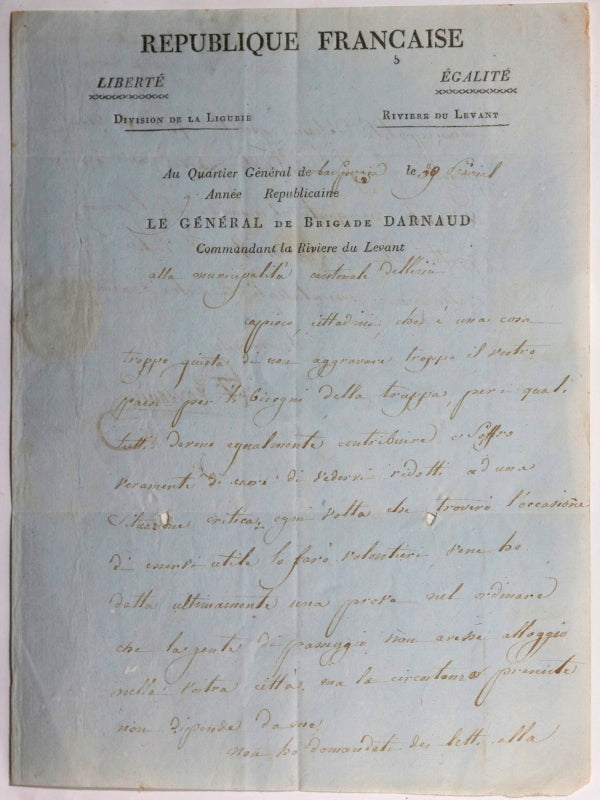 REPUBLIQUE FRANÇAISE
LIBERTÉ ÉGALITÉ
DIVISION DE LA LIGURIE RIVIERE DU LEVANT
Au Quartier Général de le 29
9 Année Republicaine
LE GÉNÉRAL DE BRIGADE DARNAUD
Commandant la Riviere du Levant
alla municipalità cantonale
capisco, cittadini, che è una cosa
troppo giusta di non aggravare troppo il vostro
paese per li bisogni della truppa, per i quali
tutti devono egualmente contribuire e soffro
veramente di cuore di vedervi ridotti ad una
situazione critica, ogni volta che troverò l'occasione
di esservi utile lo farò volontieri, vene ho
datta ultimamente una prova nel ordinare
che la gente di passaggio non avesse alloggio
nella vostra città, ma la circostanza presente
non dipende da me,
non ho domandati dei letti alla